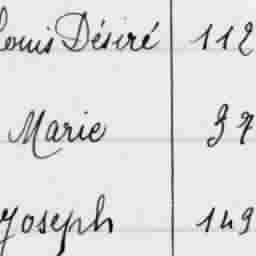 Louis Désiré 112
Marie 97
Joseph 149